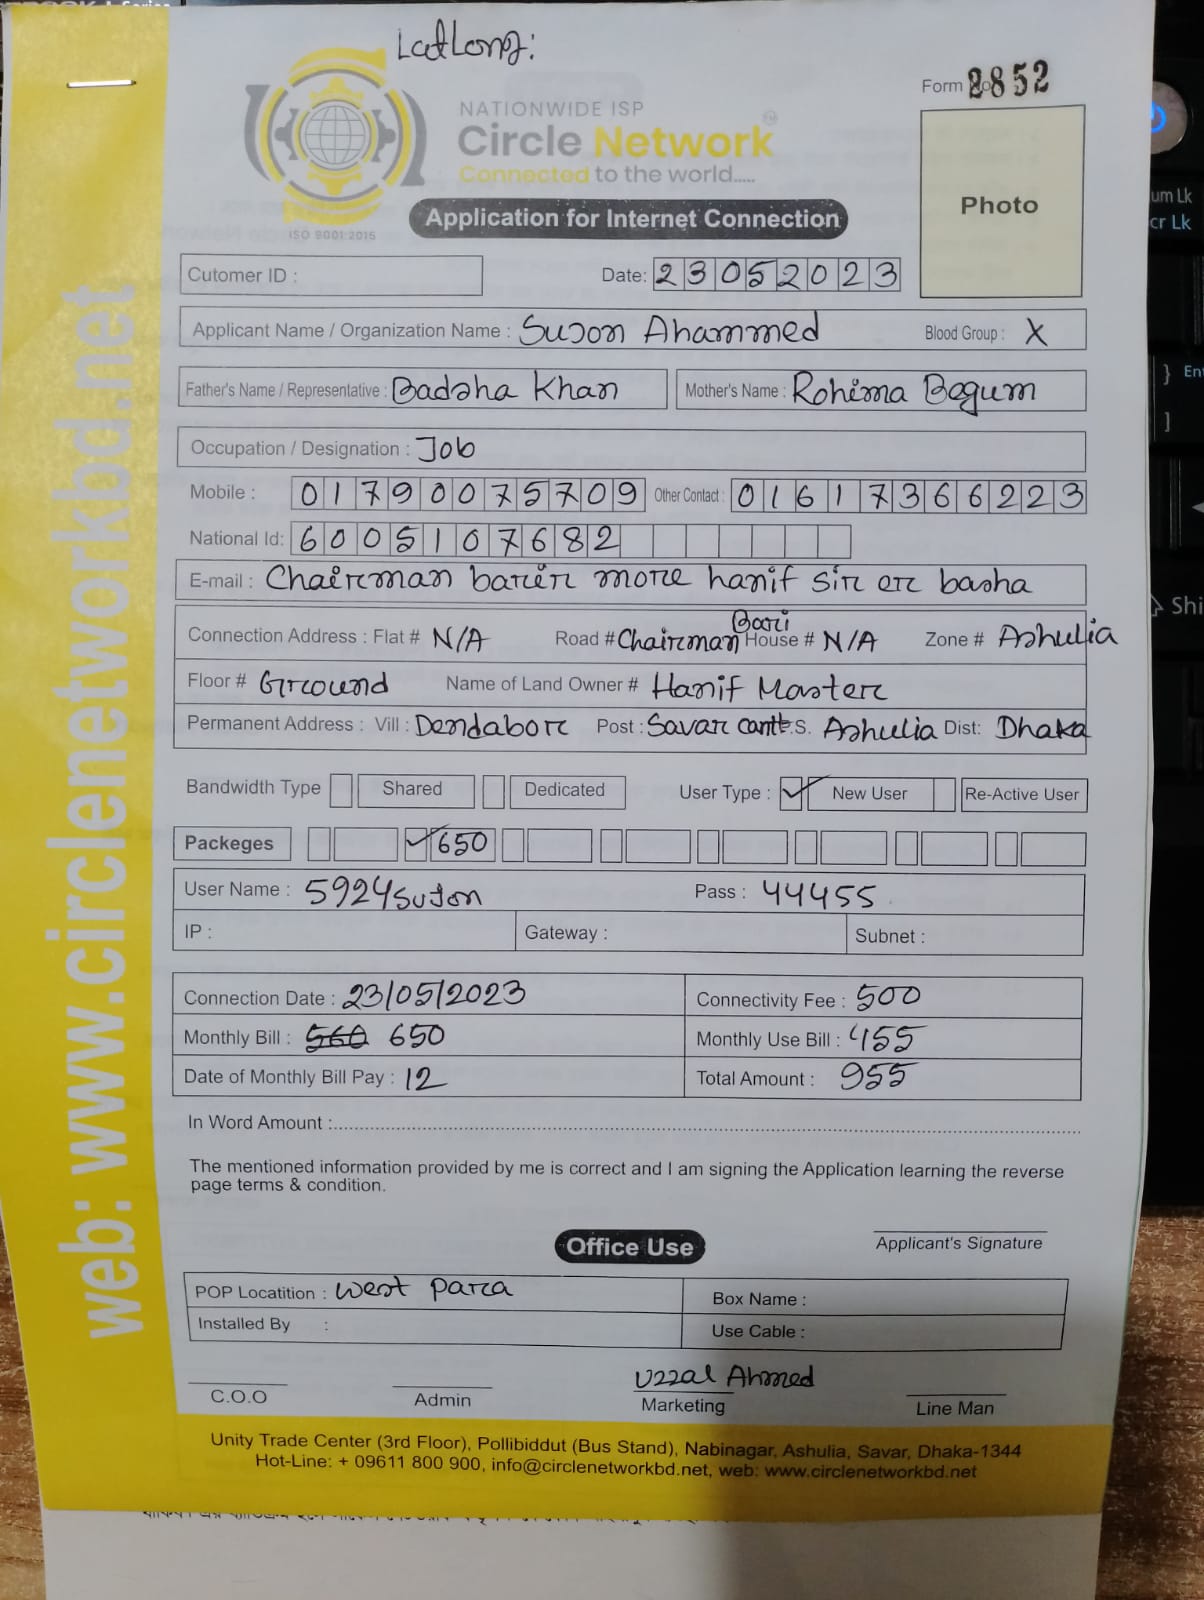 LatLong:
Form No 2852
NATIONWIDE ISP
Circle Network
Connected to the world.....
ISO 9001:2015
Application for Internet Connection
Photo
Cutomer ID :
Date: 23052023
Applicant Name / Organization Name : Sujon Ahammed Blood Group : X
Father's Name / Representative : Badsha Khan Mother's Name : Rohima Begum
Occupation / Designation : Job
Mobile : 01790075709 Other Contact : 01617366223
National Id: 6005107682
E-mail : Chairman barir more hanif sir er basha
Connection Address : Flat # N/A Road # Chairman Bari House # N/A Zone # Ashulia
Floor # Ground Name of Land Owner # Hanif Master
Permanent Address : Vill : Dendabor Post : Savar cantt P.S. Ashulia Dist: Dhaka
Bandwidth Type Shared Dedicated User Type : New User Re-Active User
Packeges 650
User Name : 5924sujon Pass : 44455
IP : Gateway : Subnet :
Connection Date : 23/05/2023 Connectivity Fee : 500
Monthly Bill : 560 650 Monthly Use Bill : 455
Date of Monthly Bill Pay : 12 Total Amount : 955
In Word Amount :
The mentioned information provided by me is correct and I am signing the Application learning the reverse
page terms & condition.
Applicant's Signature
Office Use
POP Locatition : West para Box Name :
Installed By : Use Cable :
Uzzal Ahmed
C.O.O Admin Marketing Line Man
Unity Trade Center (3rd Floor), Pollibiddut (Bus Stand), Nabinagar, Ashulia, Savar, Dhaka-1344
Hot-Line: + 09611 800 900, info@circlenetworkbd.net, web: www.circlenetworkbd.net
web: www.circlenetworkbd.net
um Lk
cr Lk
} Ent
]
Shi